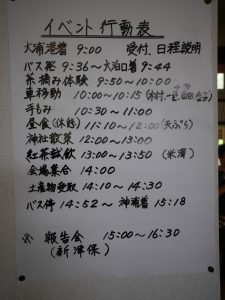 イベント行動表
大浦港着 9:00 受付、日程説明
バス発 9:36〜大泊口着 9:44
茶摘み体験 9:50〜10:00
車移動 10:00〜10:15
手もみ 10:30〜11:00
昼食(休憩) 11:10〜12:00(天ぷら)
神社散策 12:00〜13:00
紅茶試飲 13:00〜13:50 (米澤)
会場集合 14:00
土産物受取 14:10〜14:30
バス停 14:52〜神浦着 15:18
※ 報告会 15:00〜16:30
(新澤保)